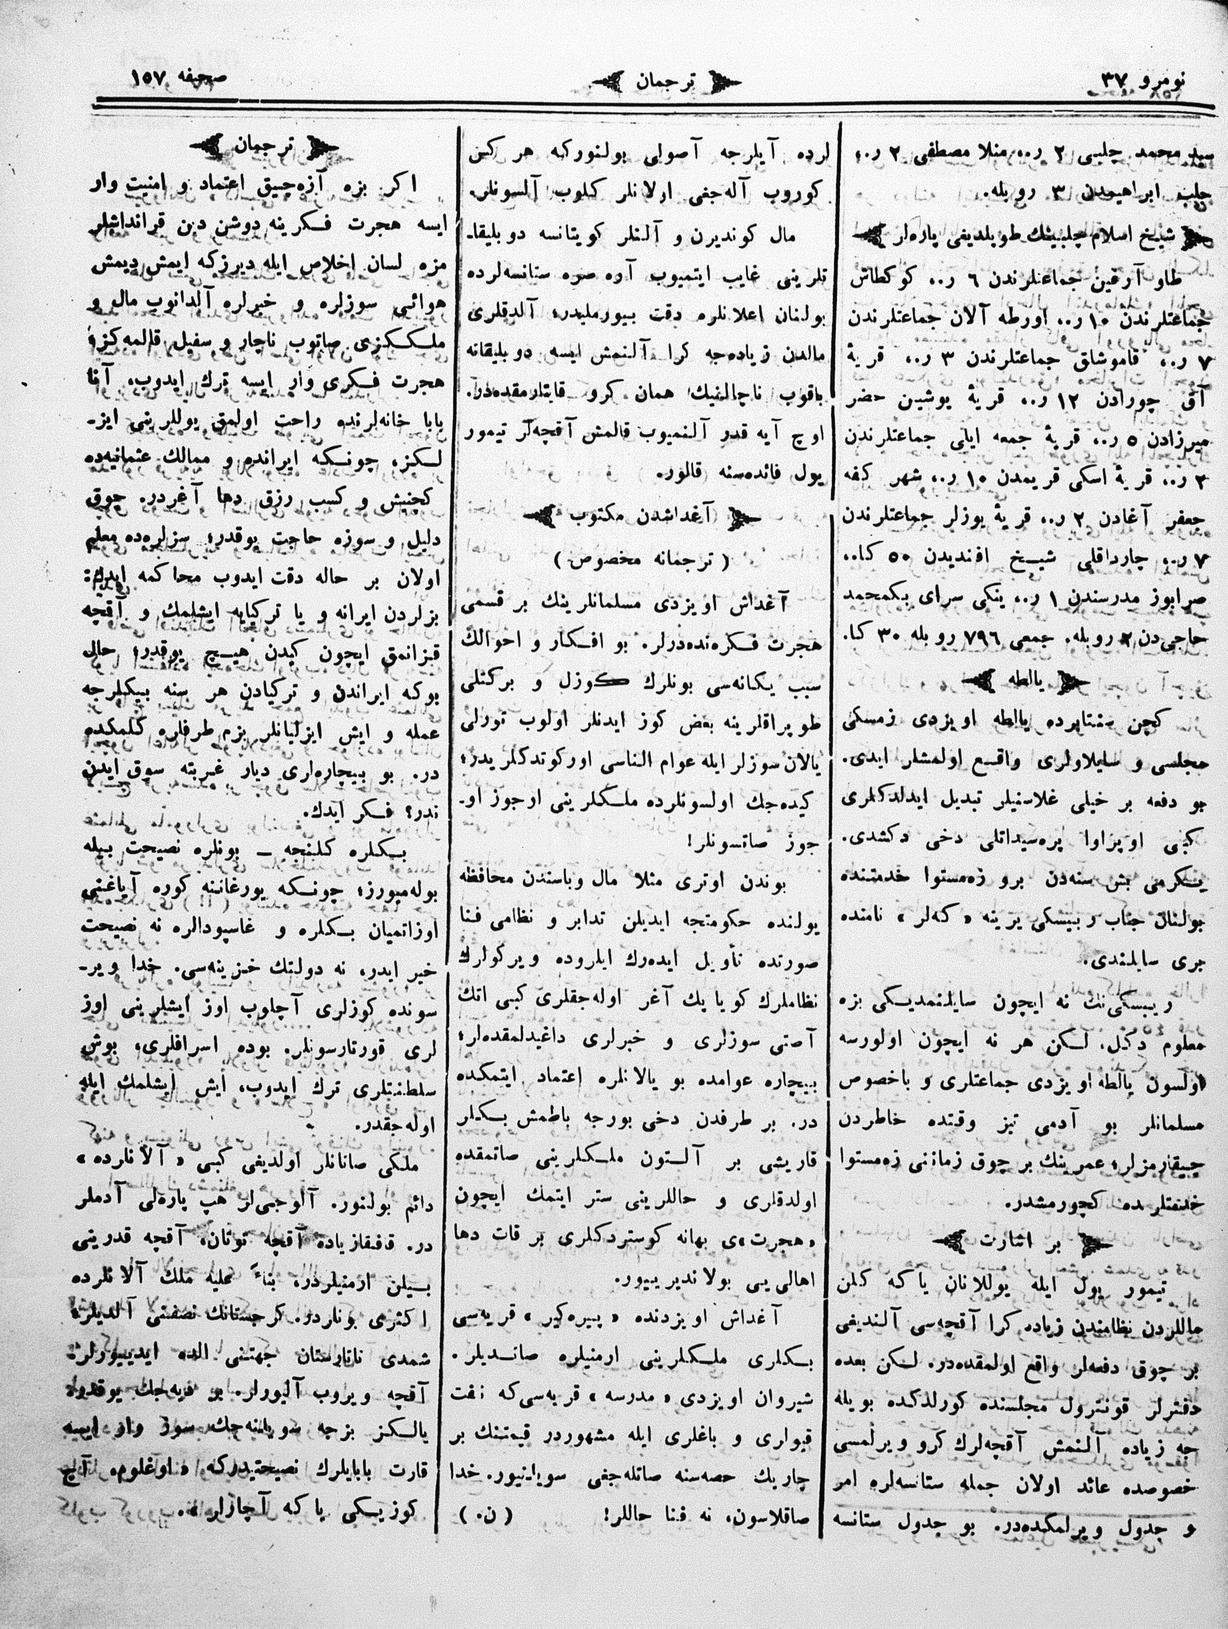 نومرو ۳۷
ترجمان
صحیفه ۱۵۷
سید محمد چلبی ۲ ر.، منلا مصطفی ۲ ر.،
جلب ابراهیمدن ۳ روبله.
شیخ اسلام چلبینك طوپلدیغی پاره‌لر
طاو آرغین جماعتلرندن ٦ ر.، كوكطاش
جماعتلرندن ۱۰ ر.، اورطه آلان جماعتلرندن
۷ ر.، قاموشلق جماعتلرندن ۳ ر.، قریهٔ
آق چورادن ۱۲ ر.، قریهٔ یوشین حضر
میرزادن ٥ ر.، قریهٔ جمعه ایلی جماعتلرندن
۲ ر.، قریهٔ اسكی قریمدن ۱۰ ر.، شهر كفه
جعفر آغادن ۲ ر.، قریهٔ بوزلر جماعتلرندن
۷ ر.، چارداقلی شیــخ افندیدن ٥۰ كا.،
صرابوز مدرسندن ۱ ر.، ینكی سرای بكمحمد
حاجی‌دن ۲ روبله. جمعی ۷۹٦ روبله ۳۰ كا.
یالطه
كچن سنتابرده یالطه اویزدی زمسكی
مجلسی و سایلاولری واقــع اولمشلر ایدی.
بو دفعه بر خیلی غلاسنیلر تبدیل ایدلدكلری
كبی اوپراوا پره‌سیداتلی دخی دكشدی.
یــكرمی بش سنه‌دن برو زه‌مستوا خدمتنده
بولنان جناب ربیسكی یرینه « كه‌لر » نامنده
بری سایلندی.
ریبسكی‌نك نه ایچون سایلنمدیــكی بزه
معلوم دكل. لــكن هر نه ایچون اولورسه
اولسون یالطه اویزدی جماعتلری و باخصوص
مسلمانلر بو آدمی تیز وقتده خاطردن
چیقارمزلر، عمرینك بر چوق زماننی زه‌مستوا
خدمتلرنده كچورمشدر.
بر اشارت
تیمور یول ایله یوللانان یا كه كلن
ماللردن نظامندن زیاده كرا آقچه‌سی آلندیغی
بر چوق دفعه‌لر واقع اولمقده‌در. لــكن بعده
دفترلر قونترول مجلسنده كورلدكده بویله
جه زیاده آلنمش آقچه‌لرك كرو ویرلمسی
خصوصده عائد اولان جمله ستانسه‌لره امر
و جدول ویرلمكیده‌در. بو جدول ستانسه
لرده آیلرجه آصولی بولنوركه هر كس
كوروب آله‌جغی اولانلر كلوب آلسونلر.
مال كوندیرن و آلنلر كویتانسه دوبلیقا‌ـ
تلرینی غایب ایتمیوب آره صره ستانسه‌لرده
بولنان اعلانلره دقت بیورملیدر؛ آلدقلری
مالدن زیاده‌جه كرا آلنمش ایسه دوبلیقانه
باقوب ناچالنیك همان كرو قایتارمقده‌در.
اوچ آیه قدر آلنمیوب قالمش آقچه‌لر تیمور
یول فائده‌سنه قالور.
آغداشدن مكتوب
( ترجمانه مخصوص )
آغداش اویزدی مسلمانلرینك بر قسمی
هجرت فــكرنده‌درلر. بو افــكار و احوالك
سبب یكانه‌سی بونلرك كــوزل و بركتلی
طوپراقلرینه بعض كوز ایدنلر اولوب تورلی
یالان سوزلر ایله عوام الناسی اوركوتدكلریدر؛
كیده‌جك اولسونلرده ملــكلرینی اوجوز او‌ـ
جوز صاتسونلر!
بوندن اوتری مثلا مال وباستدن محافظه
یولنده حكومتجه ایدیلن تدابر و نظامی فنا
صورتده تأویل ایده‌رك ایلروده ویركولرك
نظاملرك كویا پك آغر اوله‌جقلری كبی اتك
آصتی سوزلری و خبرلری داغیدلمقده‌لر؛
بیچاره عوامده بو یالانلره اعتماد ایتمكده
در. بر طرفدن دخی بورجه باطمش بــكلر
قاریشی بر آلــتون ملــكلرینی صاتمقده
اولدقلری و حاللرینی ستر ایتمك ایچون
« هجرت »ی بهانه كوستردكلری بر قات دها
اهالی‌یی بولاندیرییور.
آغداش اویزدنده « پیره‌كیر » قریه‌سی
بــكلری ملــكلرینی ارمنیلره صاتــدیلر.
شیروان اویزدی « مدرسه » قریه‌سی‌كه نفت
قیولری و باغلری ایله مشهوردر قیمتنك بر
چاریك حصه‌سنه صاتله‌جغی سویلانیور. خدا
صاقلاسون، نه فنا حاللر! (ن.)
ترجمان
اكر بزه آزه‌جیق اعتماد و امنیت وار
ایسه هجرت فــكرینه دوشن دین قرانداشلر
مزه لسان اخلاص ایله دیرزكه ایمش دیمش
هوائی سوزلره و خبرلره آلدانوب مال و
ملــككزی صاتوب ناچار و سفیل قالمه‌كز،
هجرت فــكری وار ایسه ترك ایدوب، آنا
بابا خانه‌لرنده راحت اولمق یوللرینی ایز‌ـ
لــكز، چونــكه ایرانده و ممالك عثمانیه‌ده
كچنش و كسب رزق دها آغردر. چوق
دلیل و سوزه حاجت یوقدر؛ سزلره‌ده معلم
اولان بر حاله دقت ایدوب محاكمه ایدك:
بزلردن ایرانه و یا تركیایه ایشلمك و آقچه
قیزانمق ایچون كیدن هیــچ یوقدر؛ حال
بوكه ایراندن و تركیادن هر سنه بیكلرجه
عمله و ایش ایزلیانلر بزم طرفلره كلمكده
در. بو بیچاره‌لری دیار غربته سوق ایدن
ندر؟ فــكر ایدك.
بــكلره كلنجه ــ بونلره نصیحت بیله
بوله‌میورز؛ چونــكه یورغاننه كوره آیاغنی
اوزاتمیان بــكلره و غاسپودالره نه نصیحت
خیر ایدر، نه دولتك خزینه‌سی. خدا ویر‌ـ
سونده كوزلری آچلوب اوز ایشلرینی اوز
لری قورتارسونلر. بوده اسرافلری، بوش
سلطنتلری ترك ایدوب، ایش ایشلمك ایله
اوله‌جقدر.
ملكی صاتانلر اولدیغی كبی « آلانلرده »
دائم بولنور. آلوجی‌لر هپ پاره‌لی آدملر
در. قافقازیاده آقچه توتان، آقچه قدرینی
بــیلن ارمنیلردر، بناءً علیه ملك آلانلرده
اكثری بوناردر. كرجستانك نصفنی آلدیلر،
شمدی تاتارستان جهتنی الده ایدییورلر.
آقچه ویروب آلیورلر. بر دیه‌جك یوقدر.
یالــكز بزجه سویلنه‌جك سوز وار ایسه
قارت بابایلرك نصیحتیدركه « اوغلوم، آچ
كوزیــكی یا كه آچارلر ».